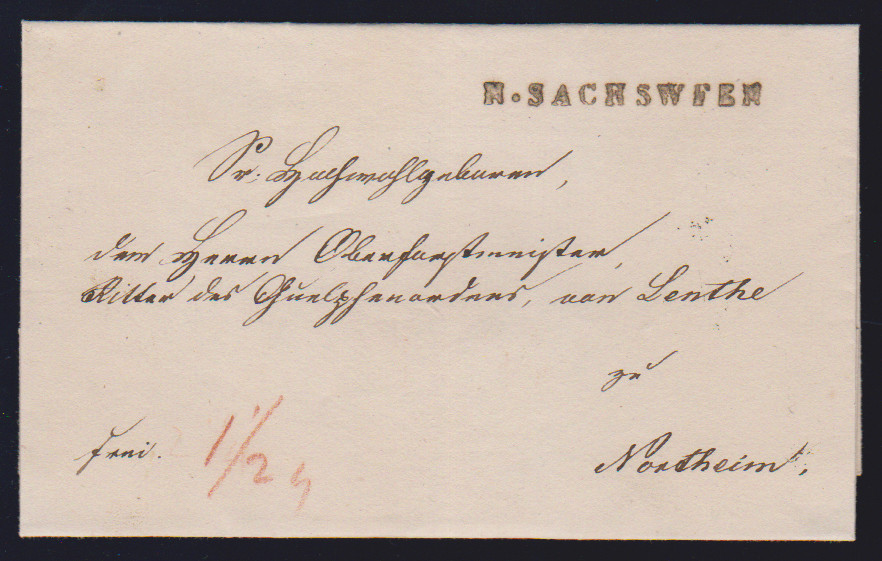 N. SACHSWFEN
Sr. Hochwohlgeboren,
dem Herrn Oberforstmeister,
Ritter des Guelphenordens, von Lenthe
zu
Northeim.
frei.
1/2